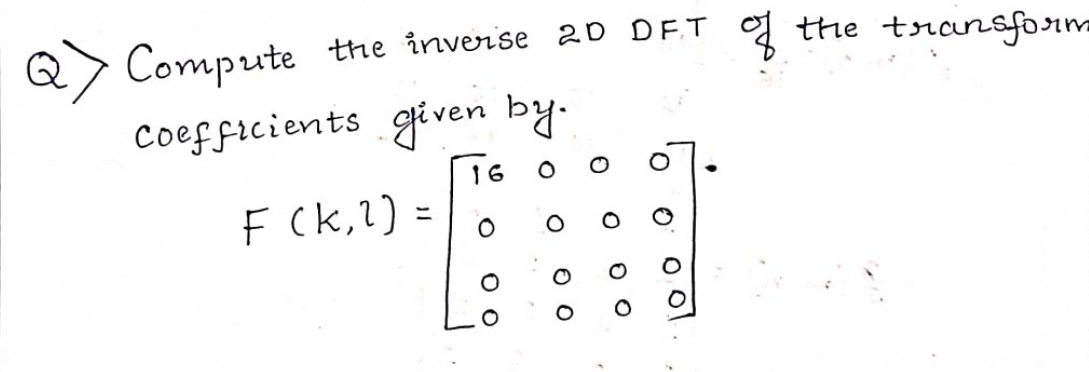 Q> Compute the inverse 2D DFT of the transform
coefficients given by.
F (k,l) = [16 0 0 0].
0 0 0 0
0 0 0 0
0 0 0 0